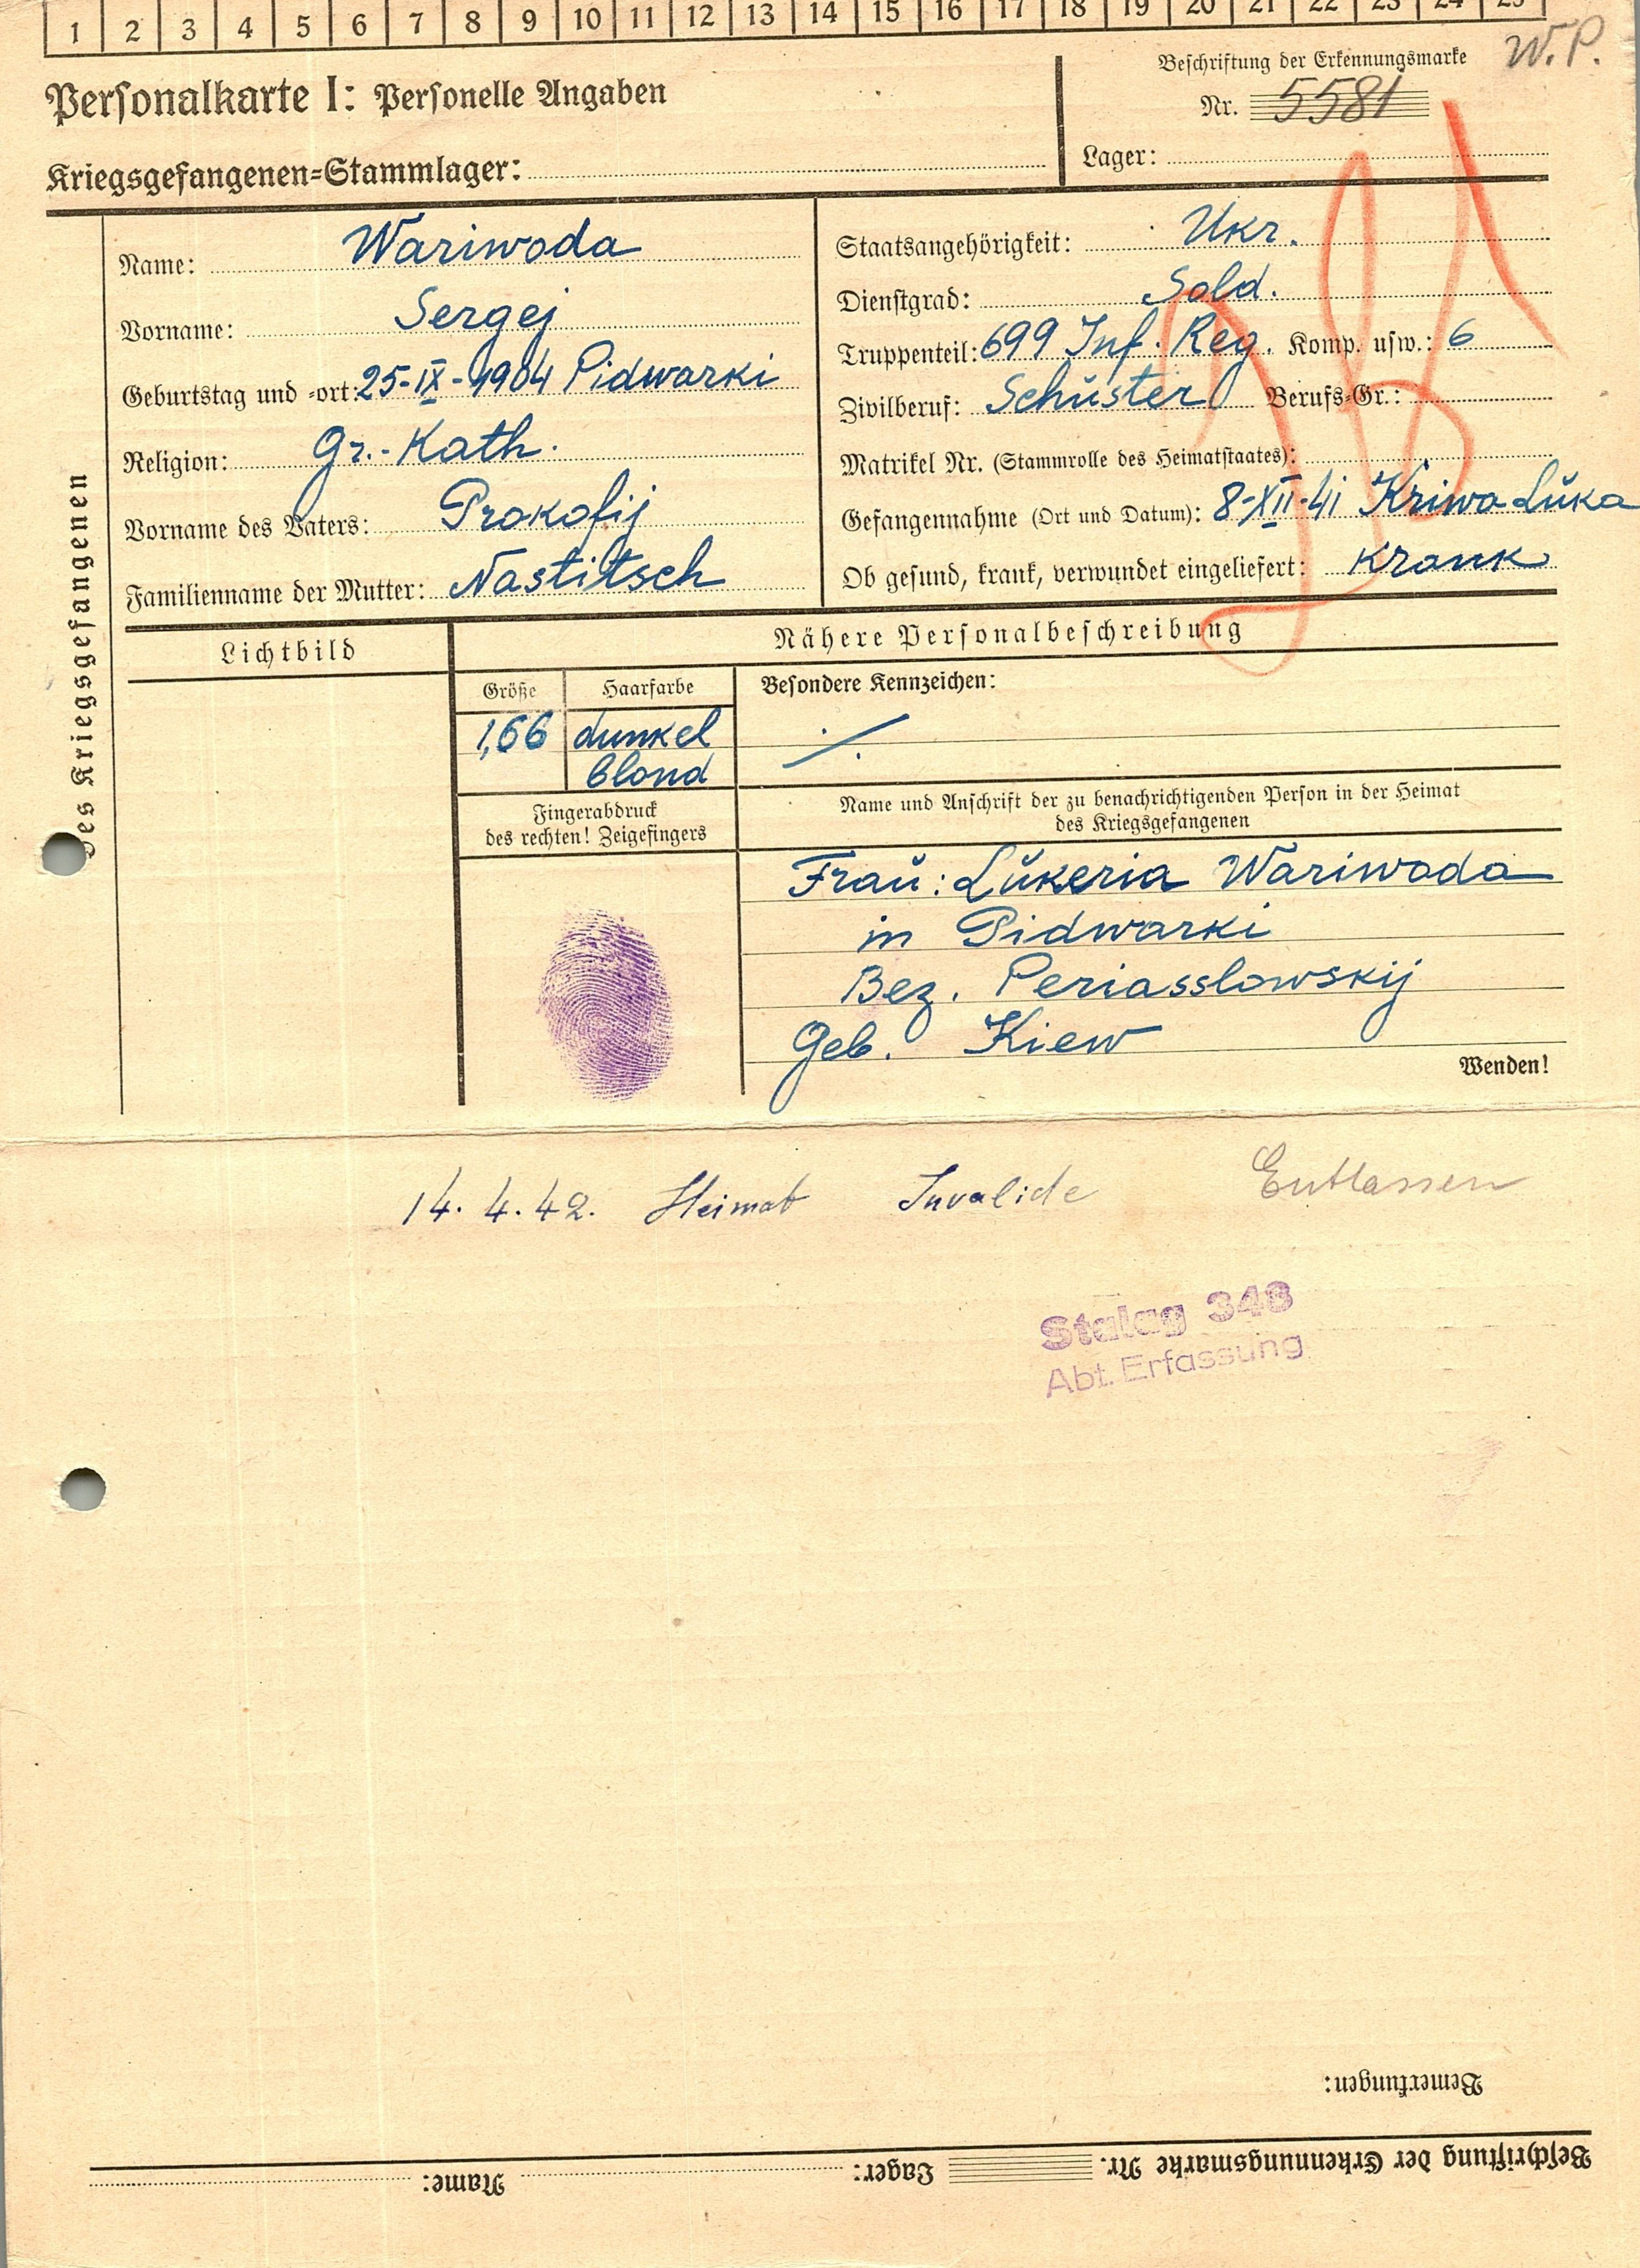 1 2 3 4 5 6 7 8 9 10 11 12 13 14 15 16 17 18 19 20 21 22 23 24 25
W.P.
Personalkarte I: Personelle Angaben
Beschriftung der Erkennungsmarke
Nr. 5581
Kriegsgefangenen=Stammlager:
Lager:
des Kriegsgefangenen
Name: Wariwoda
Vorname: Sergej
Geburtstag und =ort: 25-IX-1904 Pidwarki
Religion: Gr.-Kath.
Vorname des Vaters: Prokofij
Familienname der Mutter: Nastitsch
Staatsangehörigkeit: Ukr.
Dienstgrad: Sold.
Truppenteil: 699 Inf. Reg. Komp. usw.: 6
Zivilberuf: Schuster Berufs=Gr.:
Matrikel Nr. (Stammrolle des Heimatstaates):
Gefangennahme (Ort und Datum): 8-XII-41 Kriwa Luka
Ob gesund, krank, verwundet eingeliefert: krank
Lichtbild
Nähere Personalbeschreibung
Größe
Haarfarbe
Besondere Kennzeichen:
1,66
dunkel
blond
·/.
Fingerabdruck
des rechten! Zeigefingers
Name und Anschrift der zu benachrichtigenden Person in der Heimat
des Kriegsgefangenen
Frau: Lukeria Wariwoda
in Pidwarki
Bez. Periasslowskij
Geb. Kiew
Wenden!
14. 4. 42. Heimat Invalide Entlassen
Stalag 348
Abt. Erfassung
Bemerkungen:
Beschriftung der Erkennungsmarke Nr. Lager: Name: